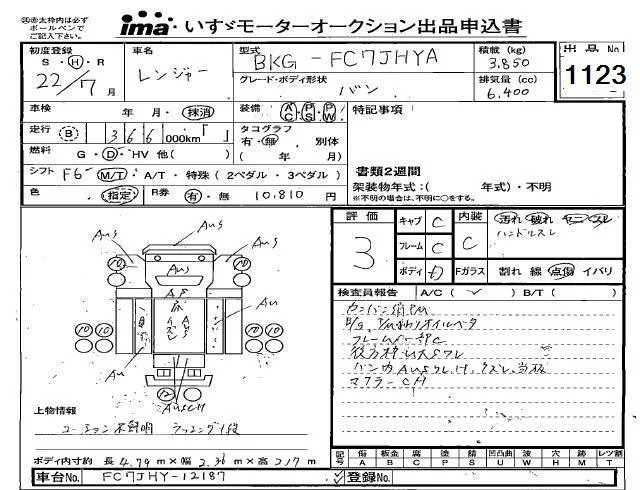 ㊟赤太枠内は必ず
ボールペンで
ご記入下さい。
ima いすゞモーターオークション出品申込書
初度登録 S・H・R 22/7月
車名 レンジャー
型式 BKG-FC7JHYA
積載 (kg) 3,850
出品No 1123
グレード・ボディ形状 バン
排気量 (cc) 6,400
車検 年 月・抹消
装備 AC PS PW
特記事項
走行 B 366 000km「 」
タコグラフ 有・無 別体
( 年 月)
燃料 G・D・HV 他( )
書類2週間
シフト F6 M/T・A/T・特殊(2ペダル・3ペダル)
架装物年式:( 年式)・不明
※不明の場合は、不明に○をする。
色 (指定)
R券 有・無 10,810 円
評価 3
キャブ C
フレーム C
ボディ D
内装 C
汚れ 破れ ヤニ スレ
ハンドルスレ
Fガラス 割れ 線 点傷 イバリ
検査員報告 A/C( ✓ ) B/T( )
フレームC
バン内AUS
マフラーCH
Aus
Aus
Aus
Aus
Au
Au
AusCH
上物情報
ラッシング1段
ボディ内寸約 長4.79m×幅2.36m×高2.17m
記号 傷A 板金B 腐C 塗P 錆S 凹凸曲U 波W 穴H 跡M レツ割T
車台No. FC7JHY-12187
登録No.